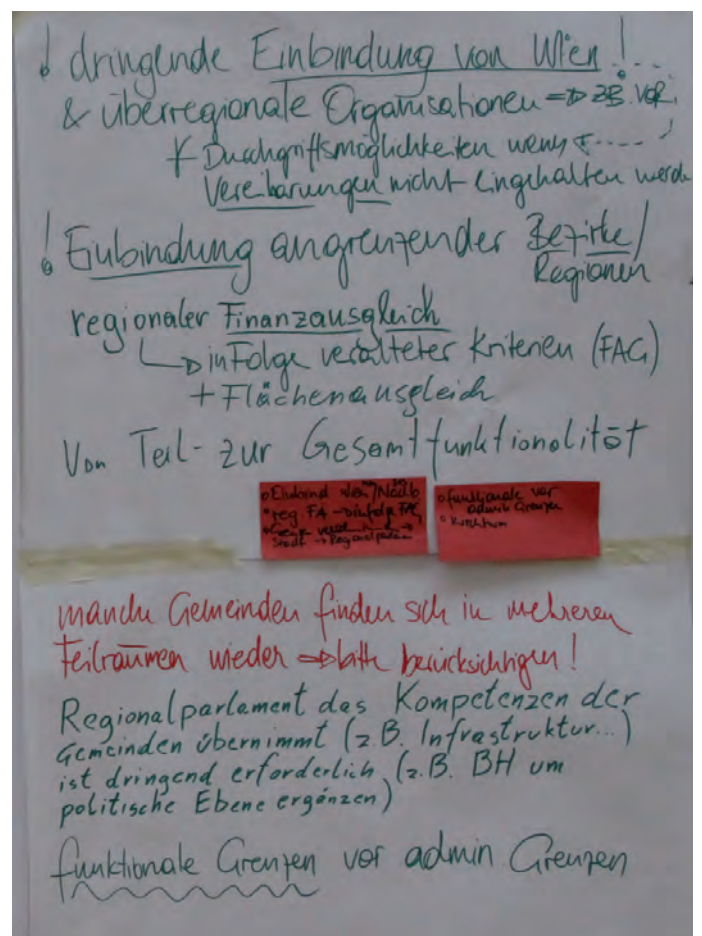 ! dringende Einbindung von Wien !...
& überregionale Organisationen => z.B. VOR.
Durchgriffsmöglichkeiten wenn
Vereibarungen nicht eingehalten werde
! Einbindung angrenzender Bezirke/
Regionen
regionaler Finanzausgleich
↳ infolge veralteter Kriterien (FAG)
+ Flächenausgleich
Von Teil- zur Gesamtfunktionalität
Einbind Wien/Nachb
reg. FA → infolge FAG
Stadt → Regionalparlam
funktionale vor
admin Grenzen
manche Gemeinden finden sich in mehreren
Teilräumen wieder => bitte berücksichtigen!
Regionalparlament das Kompetenzen der
Gemeinden übernimmt (z.B. Infrastruktur...)
ist dringend erforderlich (z.B. BH um
politische Ebene ergänzen)
funktionale Grenzen vor admin. Grenzen